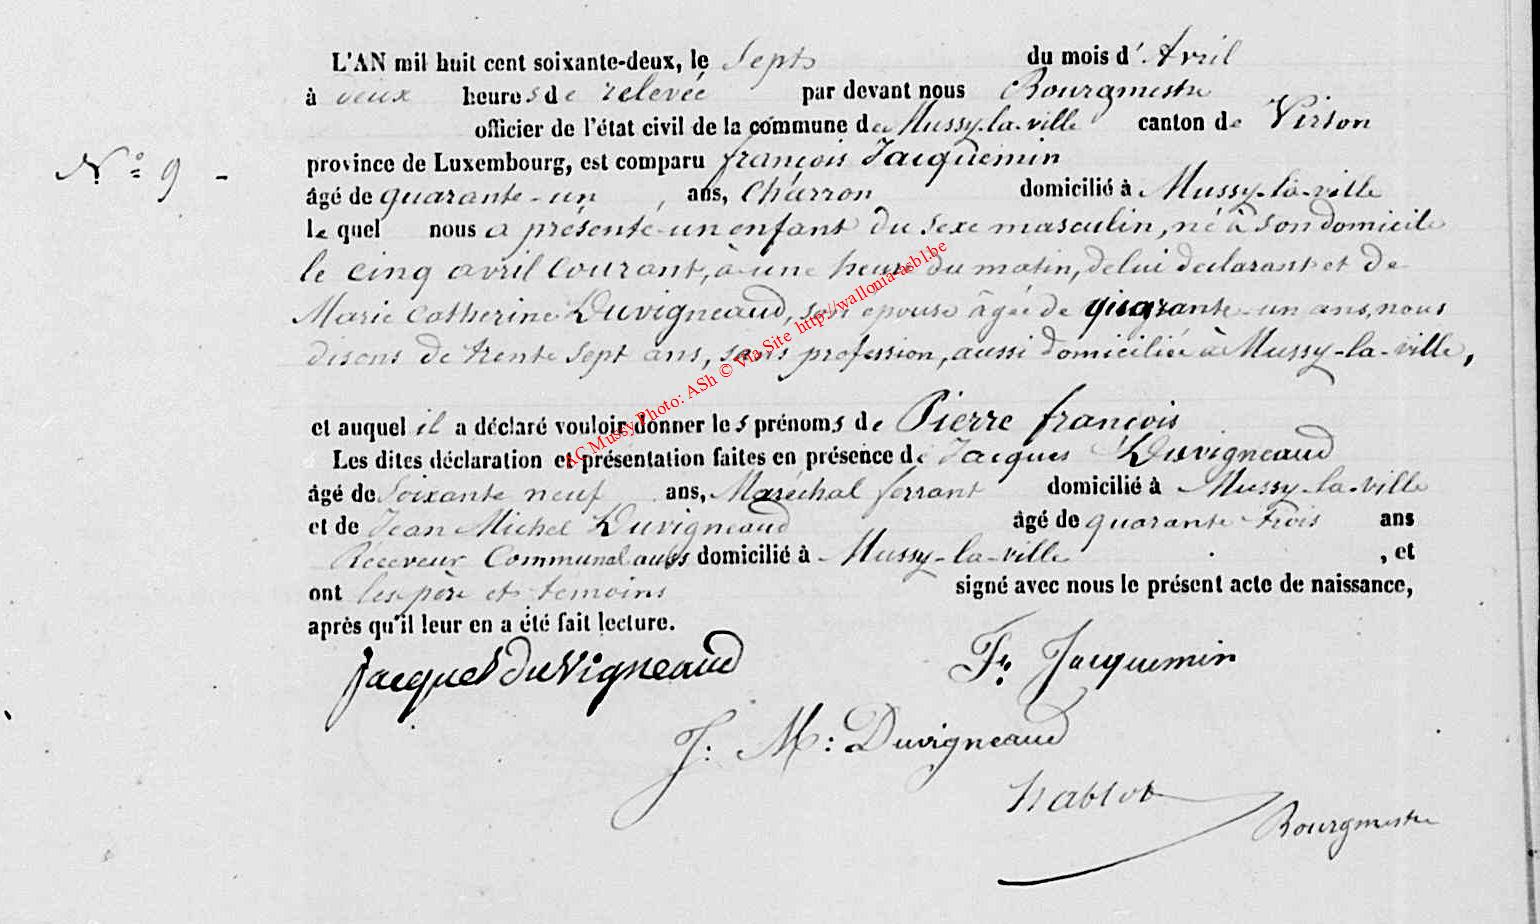 L'AN mil huit cent soixante-deux, le Sept du mois d'Avril
à deux heures de relevée par devant nous Bourgmestre
officier de l'état civil de la commune de Mussy-la-ville canton de Virton
N.° 9 -
province de Luxembourg, est comparu françois Jacquemin
âgé de quarante-un ans, Charron domicilié à Mussy-la-ville
le quel nous a présenté un enfant du sexe masculin, né à son domicile
le cinq avril courant, à une heure du matin, de lui declarant et de
Marie Catherine Duvigneaud, son epouse âgée de quarante-un ans, nous
disons de trente sept ans, sans profession, aussi domiciliée à Mussy-la-ville,
et auquel il a déclaré vouloir donner les prénoms de Pierre françois
Les dites déclaration et présentation faites en présence de Jacques Duvigneaud
âgé de Soixante neuf ans, Maréchal ferrant domicilié à Mussy-la-ville
et de Jean Michel Duvigneaud âgé de quarante-trois ans
Receveur Communal domicilié à Mussy-la-ville , et
ont les père et témoins signé avec nous le présent acte de naissance,
après qu'il leur en a été fait lecture.
Jacques duvigneaud Fs. Jacquemin
J: M: Duvigneaud
Bourgmestre
AC Mussy Photo: ASh © Via Site http://wallonia-asbl.be